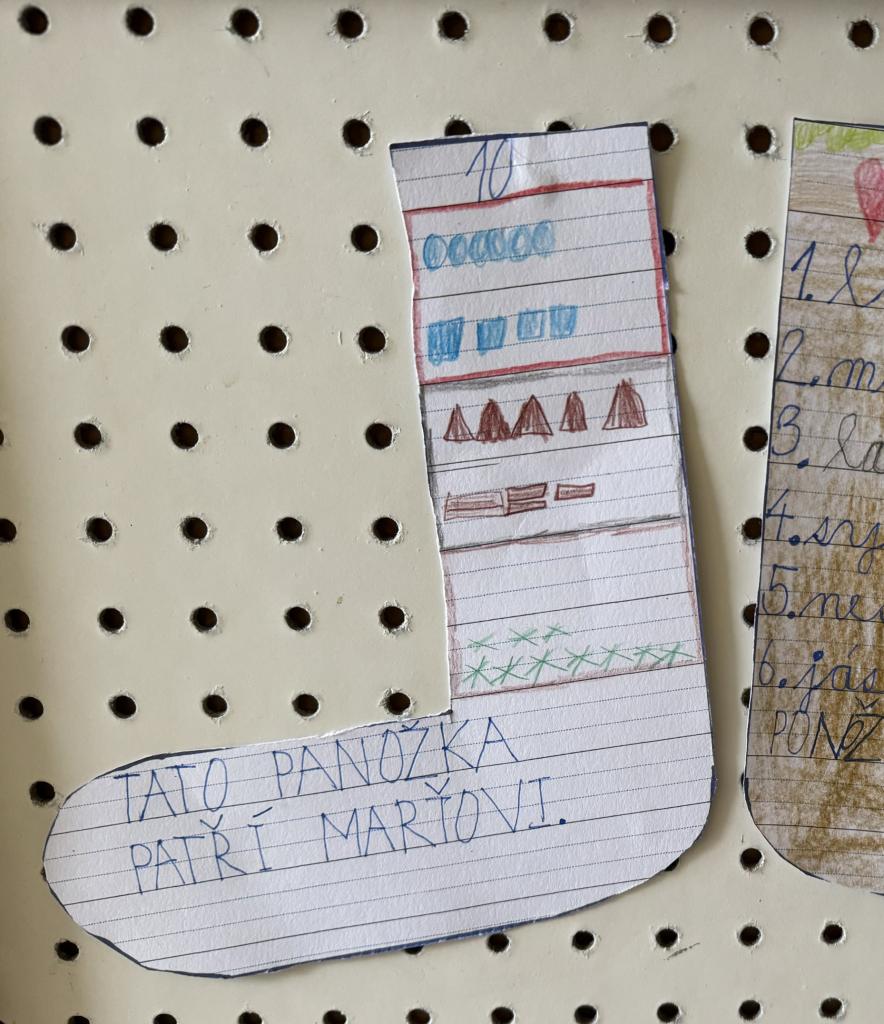 10
TATO PANOŽKA
PATŘÍ MARŤOVI.
1.
2. m
3. la
4. sny
5. ne
6. jás
PONOŽ